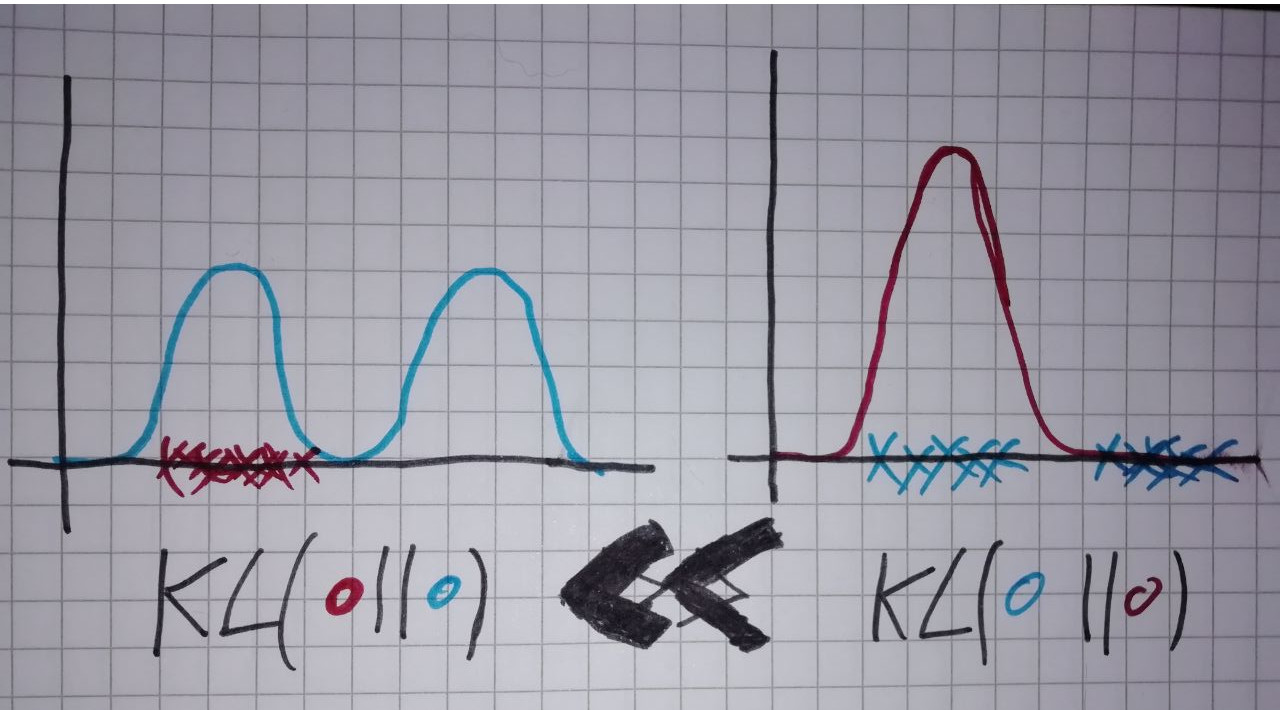 KL(o||o) << KL(o||o)